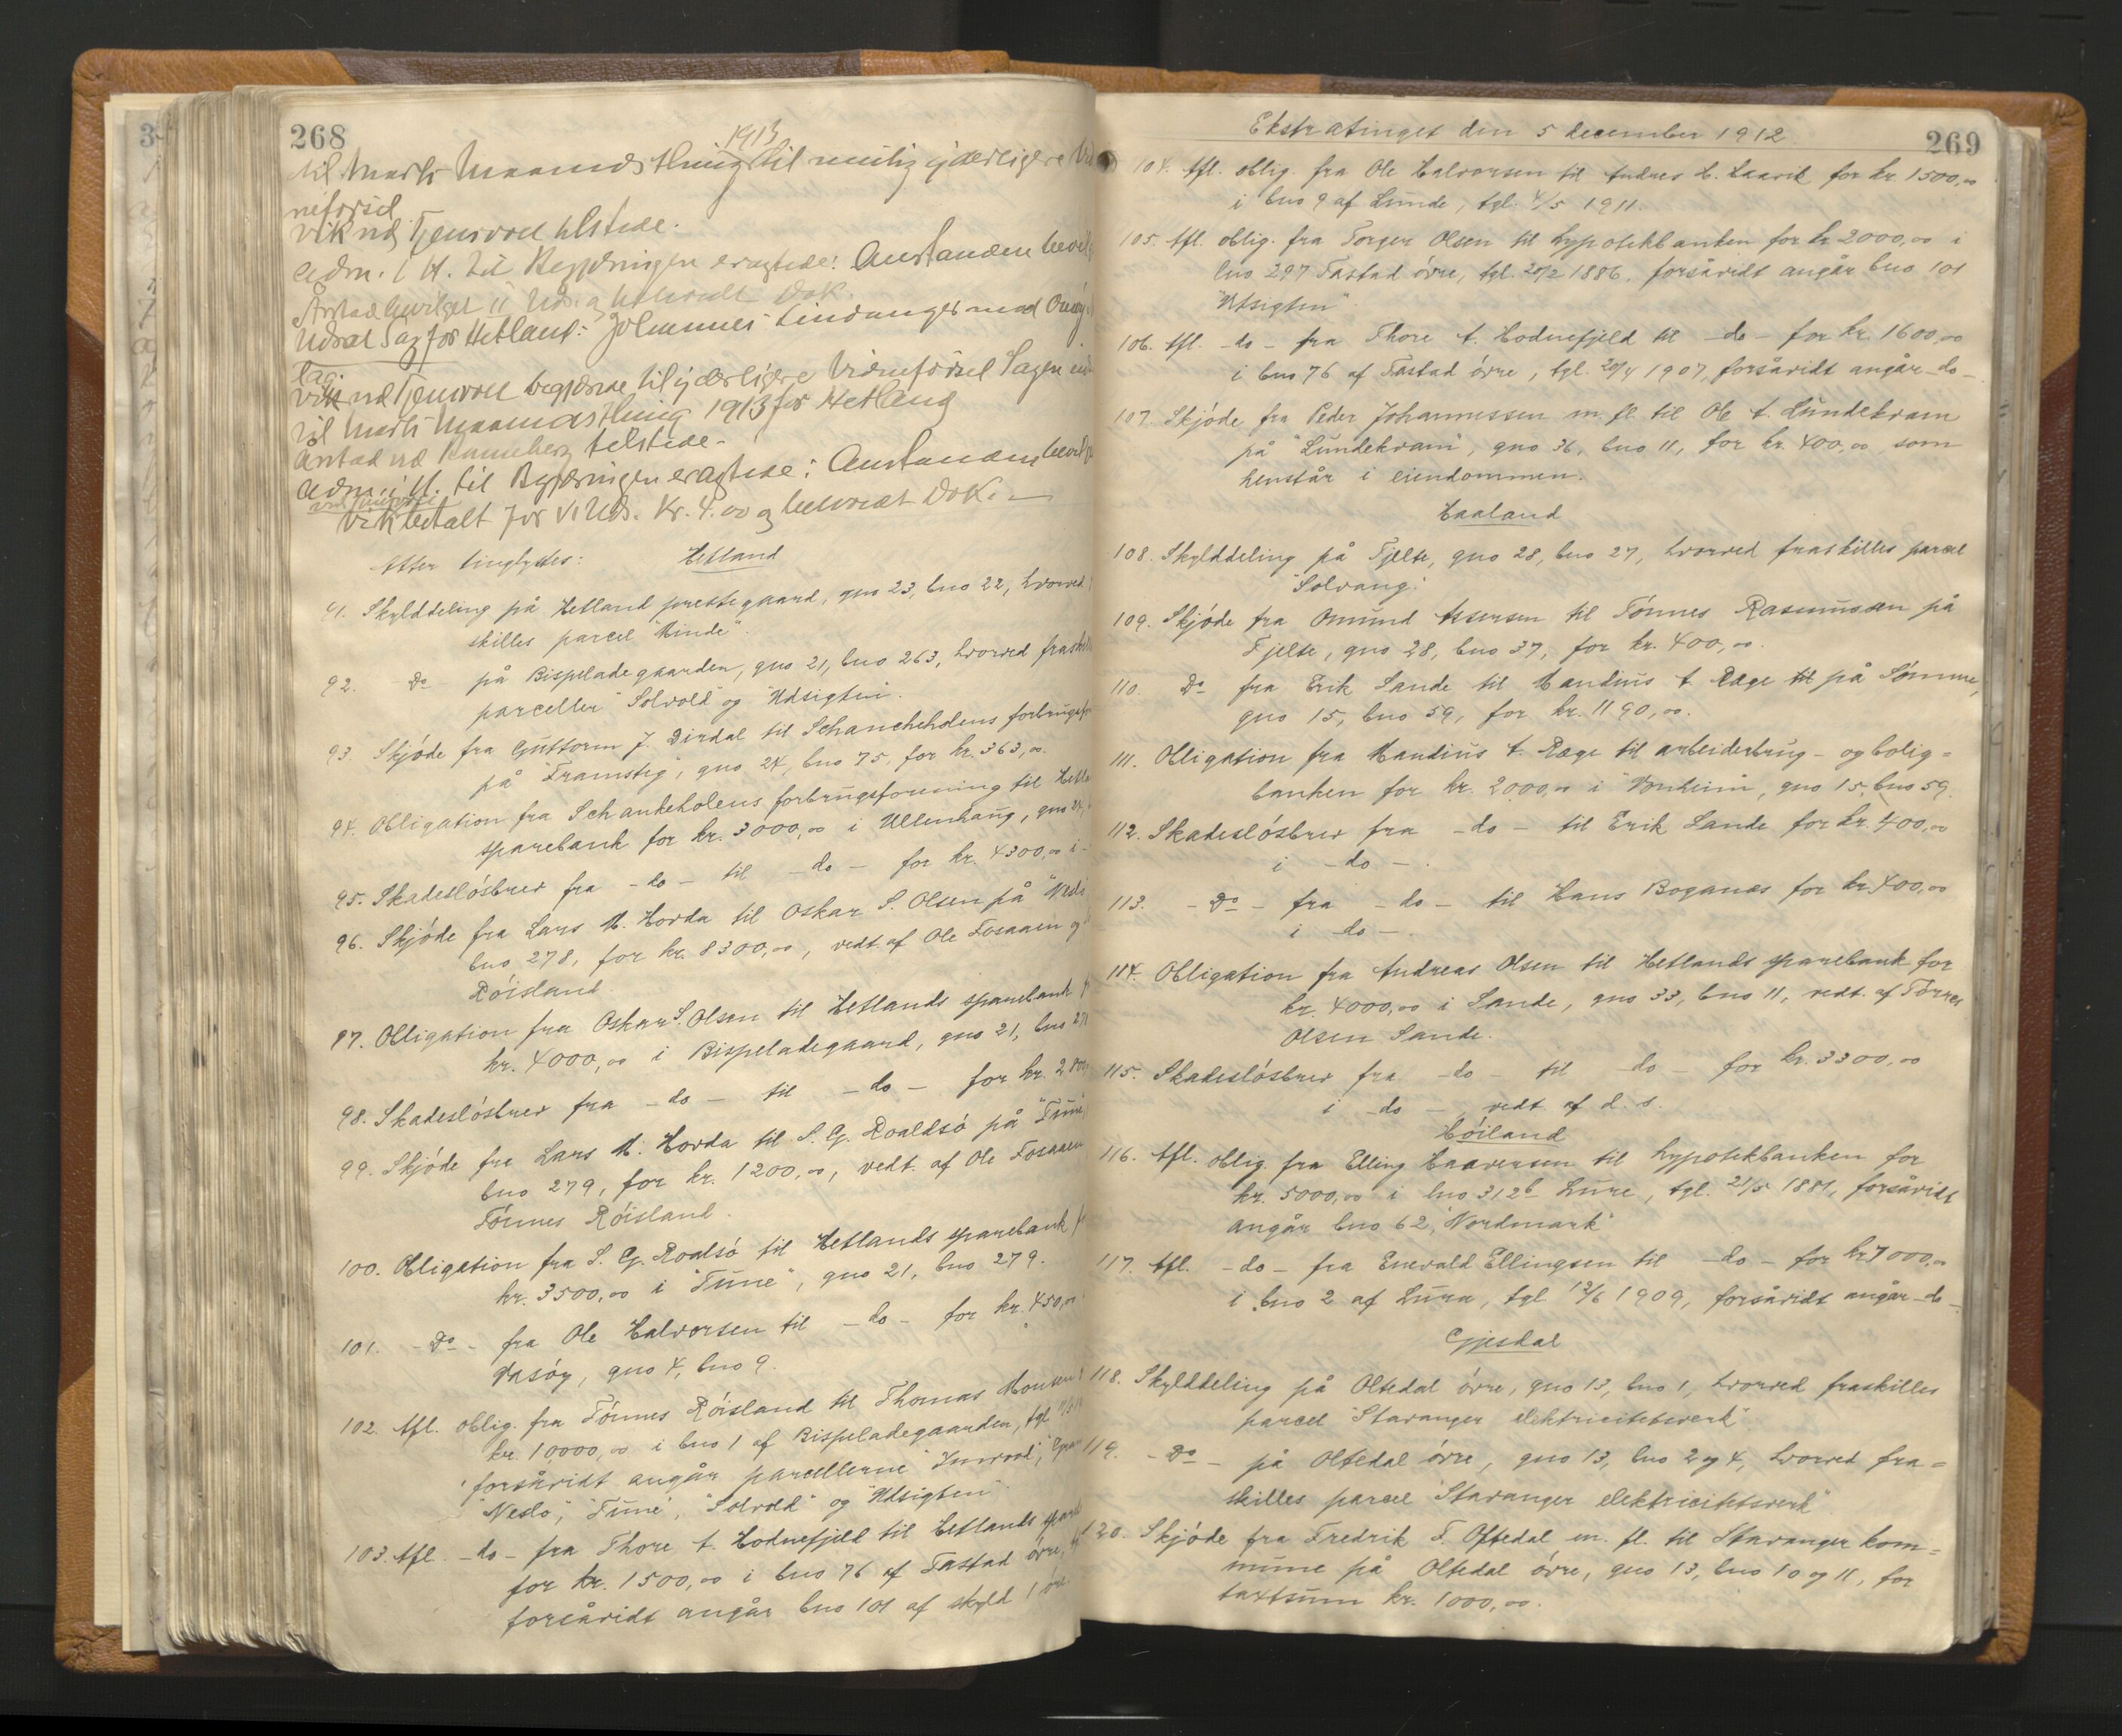 268
1913
til Marts Maanedsthing til mulig yderligere
neførsel
Vik ved Tjensvoll tilstede.
Adm. i H. til Begjæringen eragtede: Anstanden
Anstad bevilget
Udsat Sag for Hetland: Johannes Lindanger mod
Vik ved Tjensvoll begjærede til yderligere Vidneførsel Sagen
til Marts Maanedsthing 1913 for Hetland
Anstad ved Ramsberg tilstede.
Adm. i H. til Begjæringen eragtede: Anstanden
Vik betalt for Uds. Kr. 4.00 og beskrevet Dok.
Atter tinglystes: Hetland
91. Skylddeling på Hetland prestegaard, gno 23, bno 22, hvorved
skilles parcel "Minde".
92. Do på Bispeladegaarden, gno 21, bno 263, hvorved
parceller "Solvold" og "Udsigten".
93. Skjöde fra Guttorm J. Dirdal til Schancheholens
på "Framstig", gno 24, bno 75, for kr. 363,00.
94. Obligation fra Schankeholens forbrugsforening til
sparebank for kr. 3000,00 i Ullenhaug, gno 24,
95. Skadeslösbrev fra -do- til -do- for kr. 4300,00 i
96. Skjöde fra Lars M. Horda til Oskar S. Olsen på
bno 278, for kr. 8300,00, vedt. af Ole Fosaaen og
Röisland.
97. Obligation fra Oskar S. Olsen til Hetlands sparebank
kr. 4000,00 i Bispeladegaard, gno 21, bno
98. Skadeslösbrev fra -do- til -do- for kr.
99. Skjöde fra Lars M. Horda til S. G. Roaldsö på "Tune"
bno 279, for kr. 1200,00, vedt. af Ole Fosaaen
Tönnes Röisland.
100. Obligation fra S. G. Roalsö til Hetlands sparebank
kr. 3500,00 i "Tune", gno 21, bno 279.
101. -Do- fra Ole Halvorsen til -do- for kr. 450,00
Vasöy, gno 4, bno 9.
102. Afl. oblig. fra Tönnes Röisland til Thomas Monsen
kr. 10000,00 i bno 1 af Bispeladegaarden, tgl.
forsåvidt angår parcellerne
"Neslo", "Tune", "Solvold" og "Udsigten".
103. Afl. -do- fra Thore A. Hodnefjeld til Hetlands
for kr. 1500,00 i bno 76 af Tastad övre,
forsåvidt angår bno 101 af skyld 1 öre.
Ekstratinget den 5 december 1912.
269
104. Afl. oblig. fra Ole Halvorsen til Andres H. Haavik for kr. 1500,00
i bno 9 af Lunde, tgl. 4/5 1911.
105. Afl. oblig. fra Torger Olsen til hypotekbanken for kr 2000,00 i
lno 297 Tastad övre, tgl. 20/2 1886, forsåvidt angår bno 101
"Utsigten".
106. Afl. -do- fra Thore A. Hodnefjeld til -do- for kr. 1600,00
i bno 76 af Tastad övre, tgl. 20/4 1907, forsåvidt angår -do-
107. Skjöde fra Peder Johannessen m. fl. til Ole A. Lundekvam
på "Lundekvam", gno 36, bno 11, for kr. 400,00, som
henstår i eiendommen.
Haaland
108. Skylddeling på Tjelte, gno 28, bno 27, hvorved fraskilles parcel
"Solvang".
109. Skjöde fra Omund Assersen til Tönnes Rasmussen på
Tjelte, gno 28, bno 37, for kr. 400,00.
110. Do fra Erik Sande til Mandius A. Ræge til på Sömme,
gno 15, bno 59, for kr. 1190,00.
111. Obligation fra Mandius A. Ræge til arbeiderbrug- og bolig=
banken for kr. 2000,00 i "Vonheim", gno 15, bno 59.
112. Skadeslösbrev fra -do- til Erik Sande for kr. 400,00
i -do-.
113. -Do- fra -do- til Hans Boganæs for kr 400,00
i -do-.
114. Obligation fra Andreas Olsen til Hetlands sparebank for
kr. 4000,00 i Sande, gno 33, bno 11, vedt. af Torres
Olsen Sande.
115. Skadeslösbrev fra -do- til -do- for kr. 3300,00
i -do-, vedt. af d. s.
Höiland
116. Afl. oblig. fra Elling Haaversen til hypotekbanken for
kr. 5000,00 i lno 312b Lure, tgl. 21/5 1881, forsåvidt
angår bno 62, "Nordmark"
117. Afl. -do- fra Enevald Ellingsen til -do- for kr 7000,00
i bno 2 af Lura, tgl. 12/6 1909, forsåvidt angår -do-
Gjesdal
118. Skylddeling på Oltedal övre, gno 13, bno 1, hvorved fraskilles
parcel "Stavanger elektricitetsverk"
119. -Do- på Oltedal övre, gno 13, bno 2 og 4, hvorved fra=
skilles parcel "Stavanger elektricitetsverk"
120. Skjöde fra Fredrik F. Oftedal m. fl. til Stavanger kom=
mune på Oltedal övre, gno 13, bno 10 og 11, for
taxtsum kr. 1000,00.